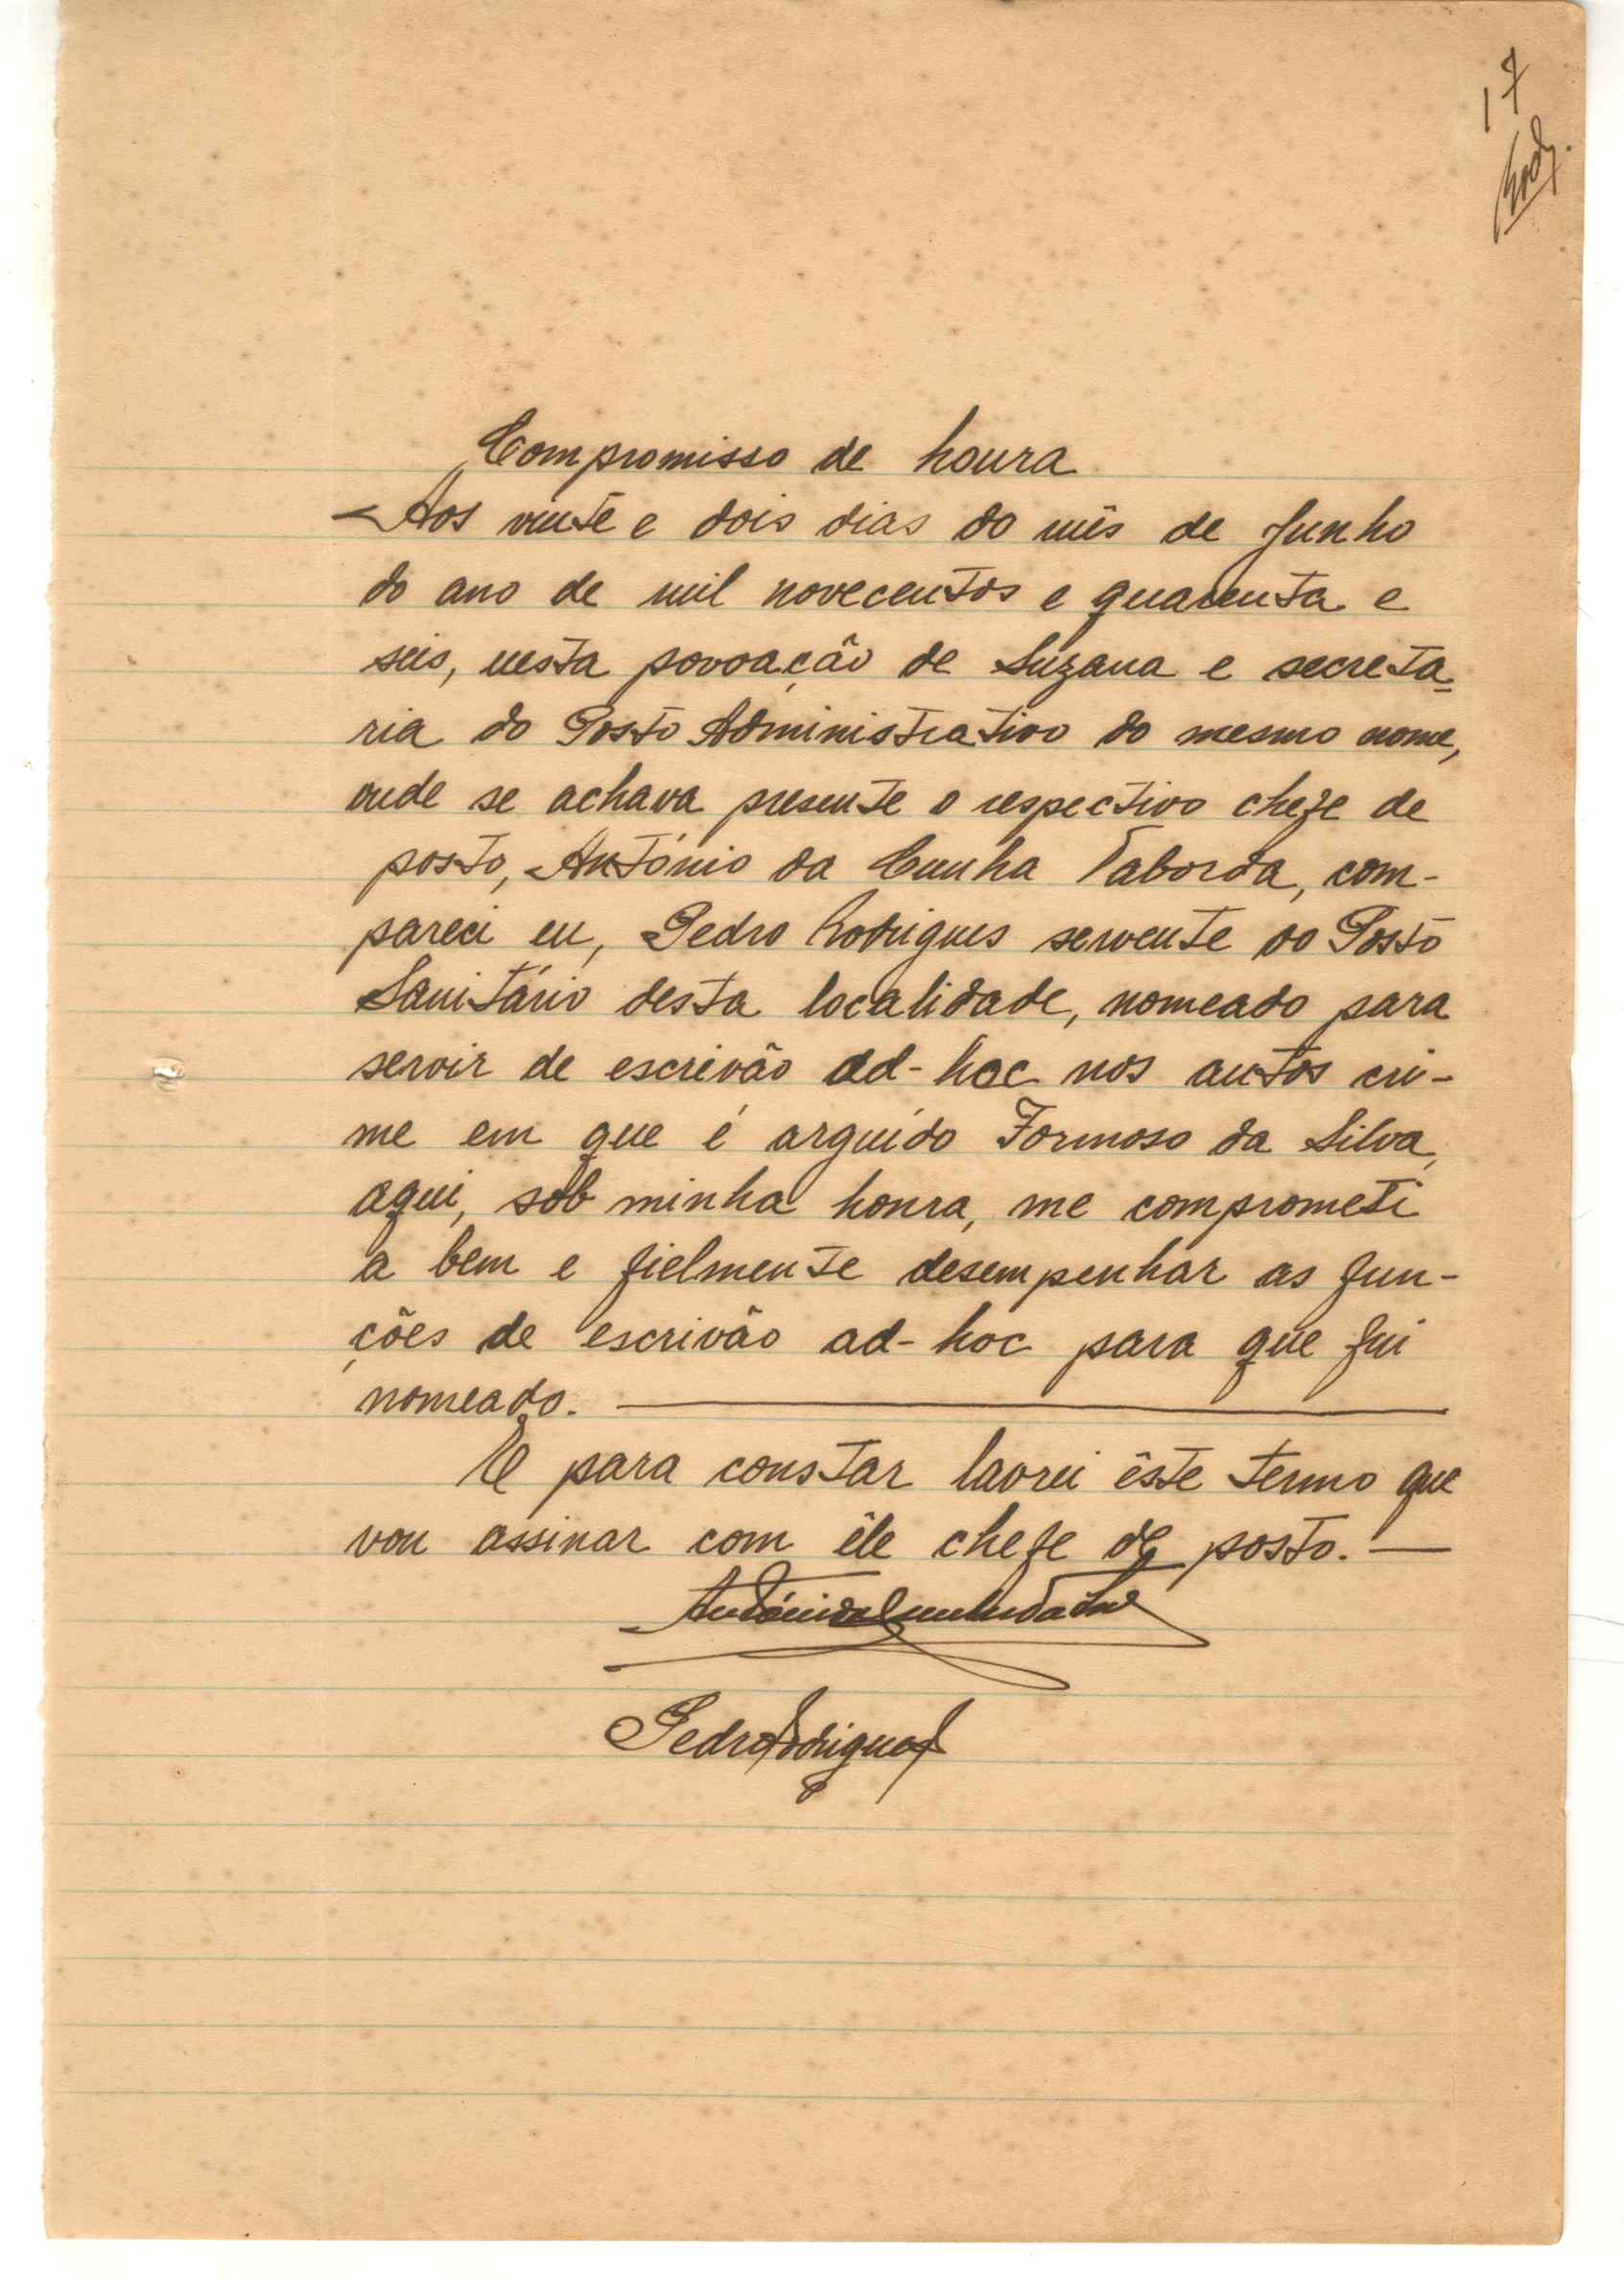 17
Rodr.
Compromisso de honra
Aos vinte e dois dias do mês de Junho
do ano de mil novecentos e quarenta e
seis, nesta povoação de Suzana e secreta-
ria do Posto Administrativo do mesmo nome,
onde se achava presente o respectivo chefe de
posto, António da Cunha Taborda, com-
pareci eu, Pedro Rodrigues servente do Posto
Sanitário desta localidade, nomeado para
servir de escrivão ad-hoc nos autos cri-
me em que é arguido Formoso da Silva,
aqui, sob minha honra, me comprometi
a bem e fielmente desempenhar as fun-
ções de escrivão ad-hoc para que fui
nomeado.
E para constar lavrei êste termo que
vou assinar com êle chefe de posto.
António da Cunha Taborda
Pedro Rodrigues